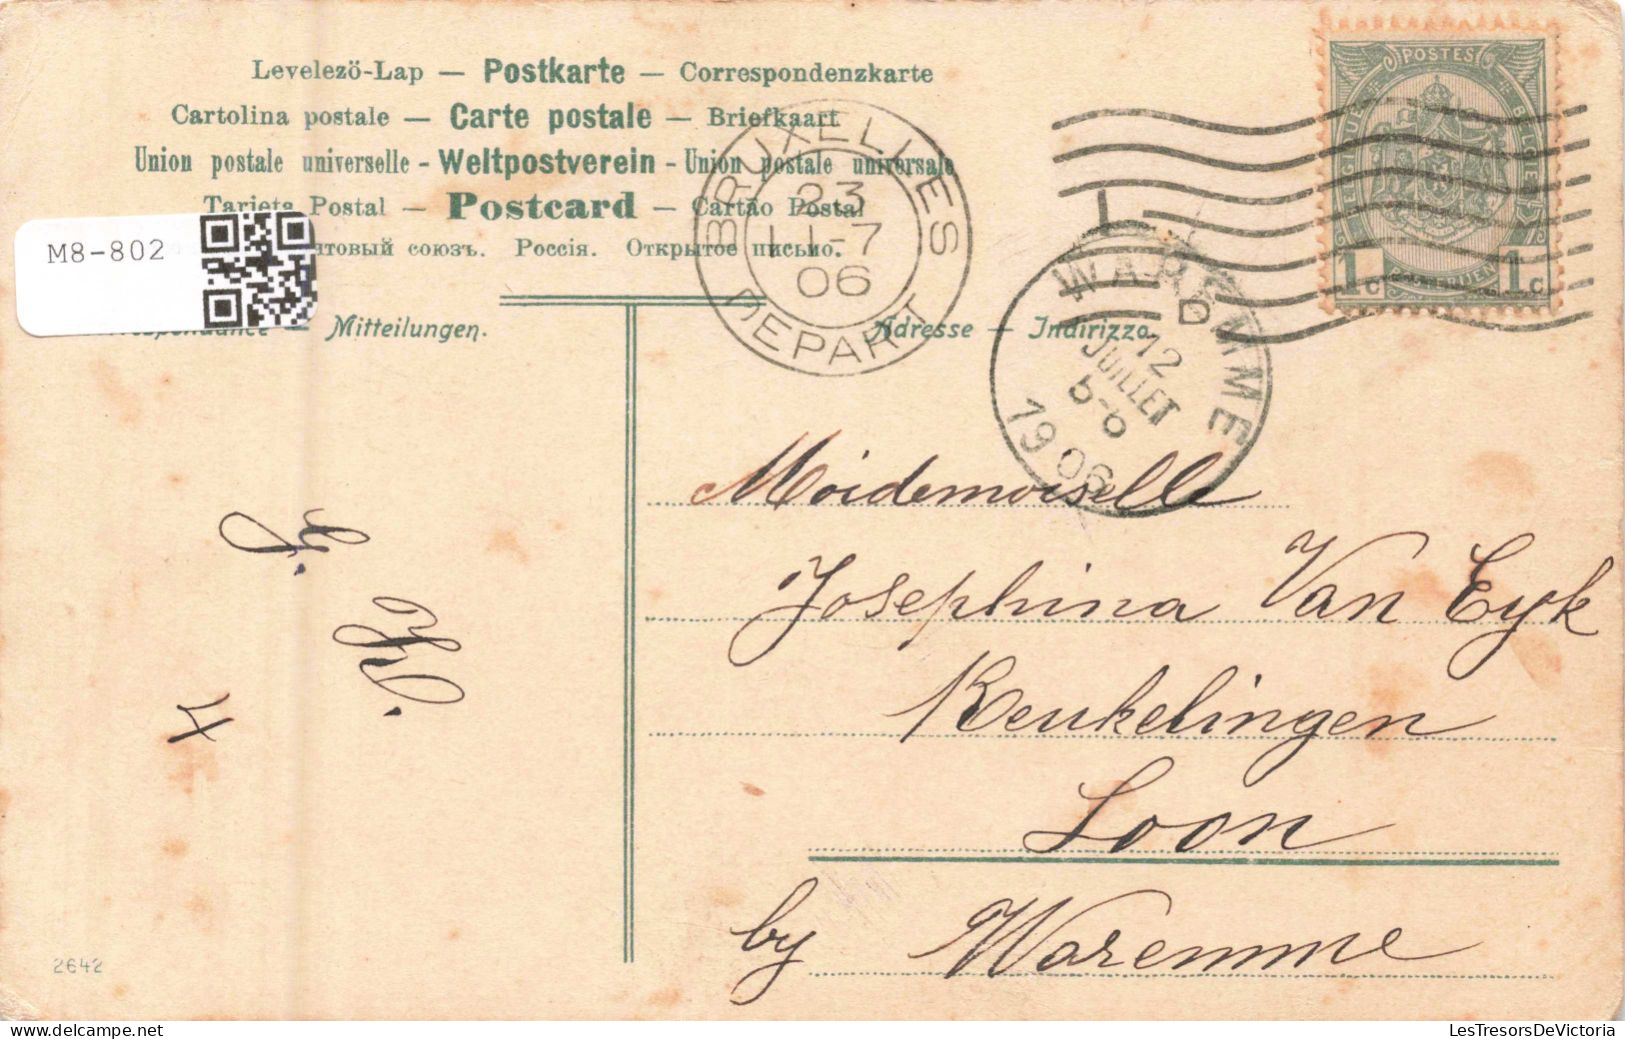 Levelező-Lap — Postkarte — Correspondenzkarte
Cartolina postale — Carte postale — Briefkaart
Union postale universelle - Weltpostverein - Union postale universale
Tarjeta Postal — Postcard — Cartão Postal
союзъ. Россія. Открытое письмо.
M8-802
— Mitteilungen.
Adresse — Indirizzo.
BRUXELLES
23
11-7
06
DEPART
WAREMME
D
12
JUILLET
1906
POSTES
BELGIQUE
BELGIE
1c
1c
Moidemoiselle
Josephina Van Eyk
Keukelingen
Loon
by Waremme
4
2642
LesTresorsDeVictoria